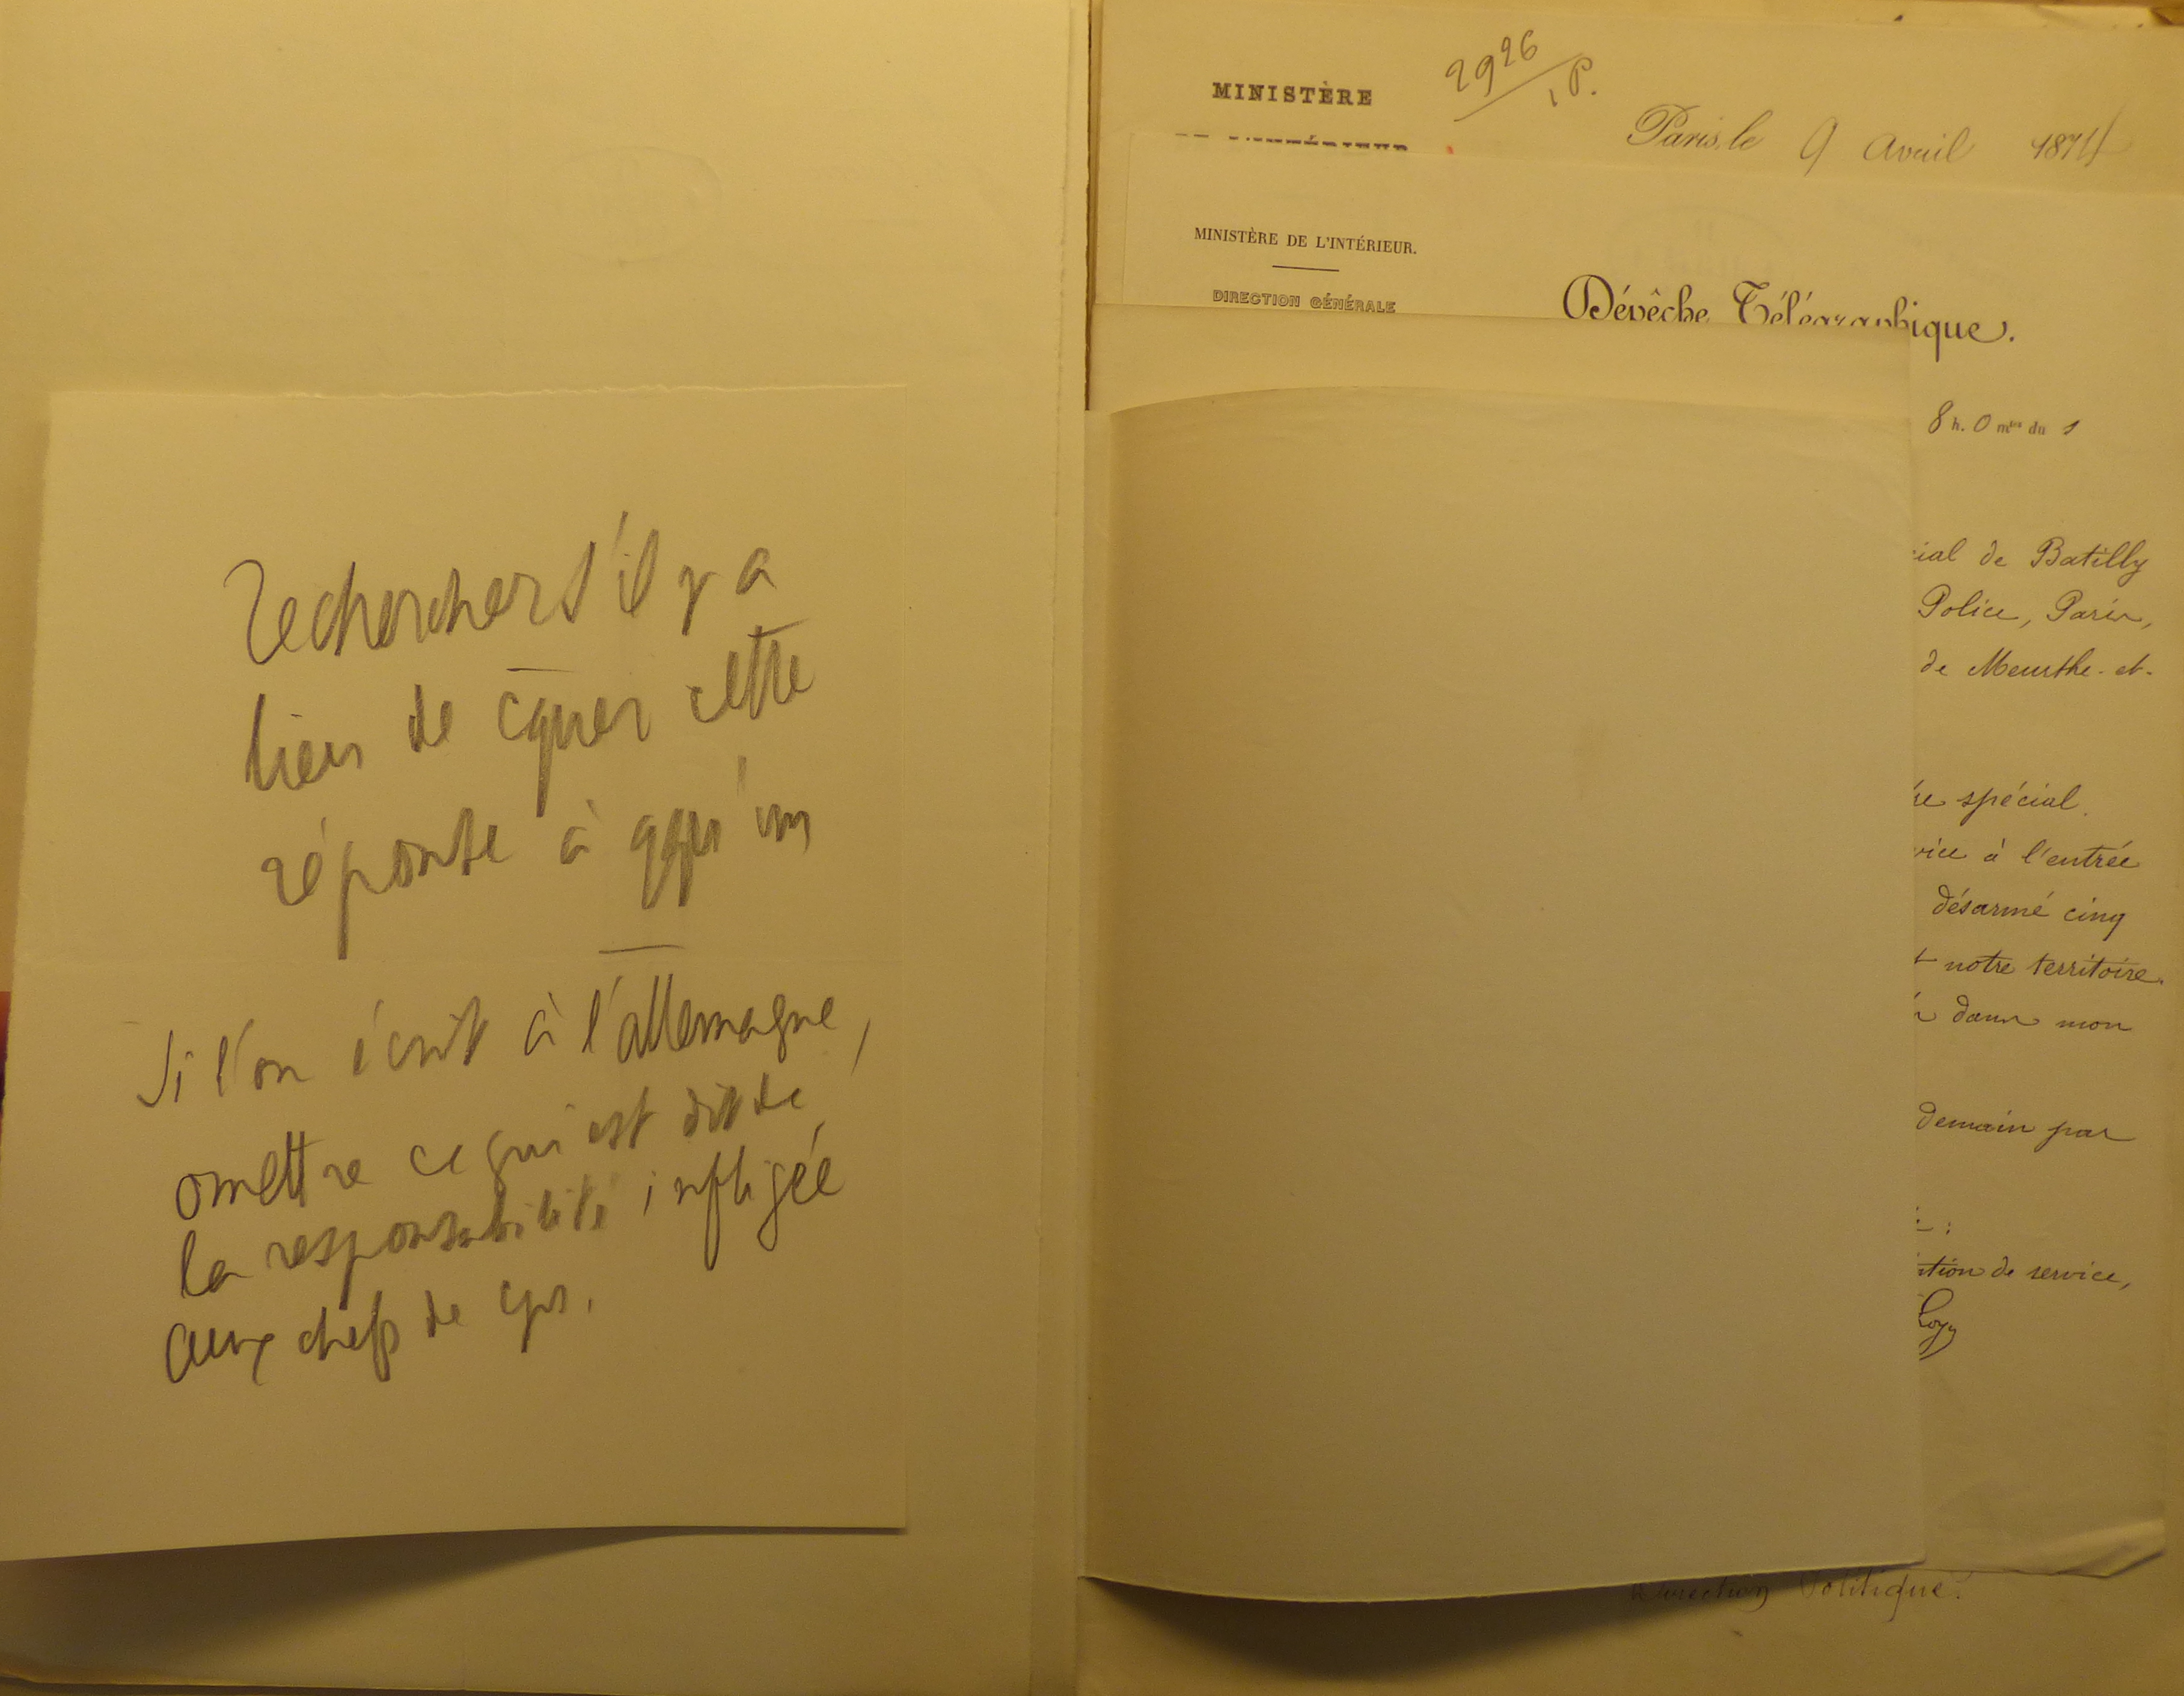 Rechercher s'il y a
lieu de cquer cette
réponse à qqu'un
Si l'on écrit à l'allemagne,
omettre ce qui est dit de
la responsabilité infligée
aux chefs de cps.
MINISTÈRE
2926/1 P.
Paris, le 9 Avril 187
MINISTÈRE DE L'INTÉRIEUR.
DIRECTION GÉNÉRALE
Dépêche Télégraphique.
8 h. 0 mtes du 1
cial de Batilly
Police, Paris,
de Meurthe-et-
re spécial.
vice à l'entrée
désarmé cinq
t notre territoire.
dans mon
demain par
:
ction de service,
Direction Politique.